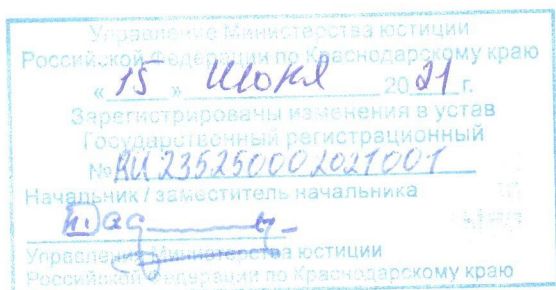 Управление Министерства юстиции
Российской Федерации по Краснодарскому краю
« 15 » июня 2021 г.
Зарегистрированы изменения в устав
Государственный регистрационный
№ RU 235250002021001
Начальник / заместитель начальника
Управление Министерства юстиции
Российской Федерации по Краснодарскому краю